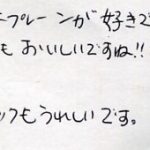 プレーンが好きで
も おいしいですね!!
つもうれしいです。